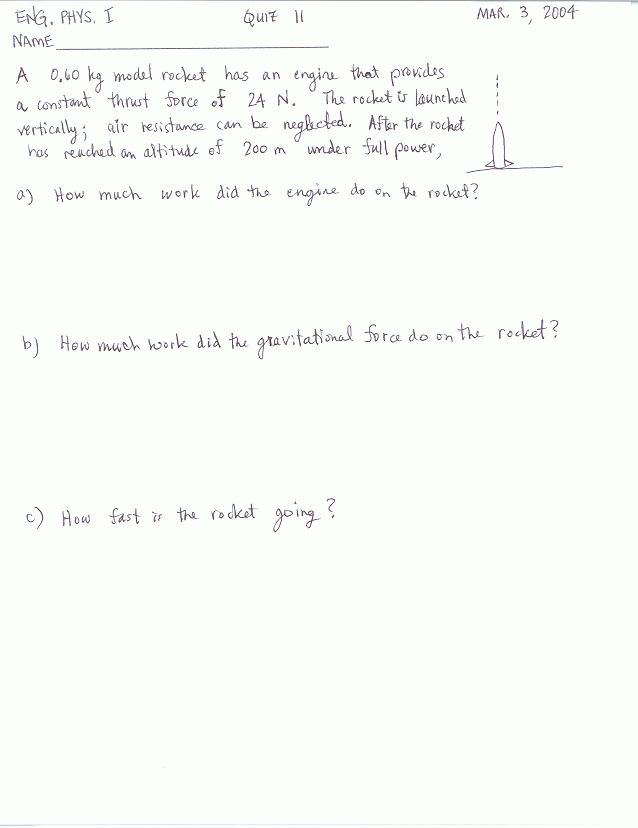 ENG. PHYS. I QUIZ 11 MAR. 3, 2004
NAME
A 0.60 kg model rocket has an engine that provides
a constant thrust force of 24 N. The rocket is launched
vertically; air resistance can be neglected. After the rocket
has reached an altitude of 200 m under full power,
a) How much work did the engine do on the rocket?
b) How much work did the gravitational force do on the rocket?
c) How fast is the rocket going?